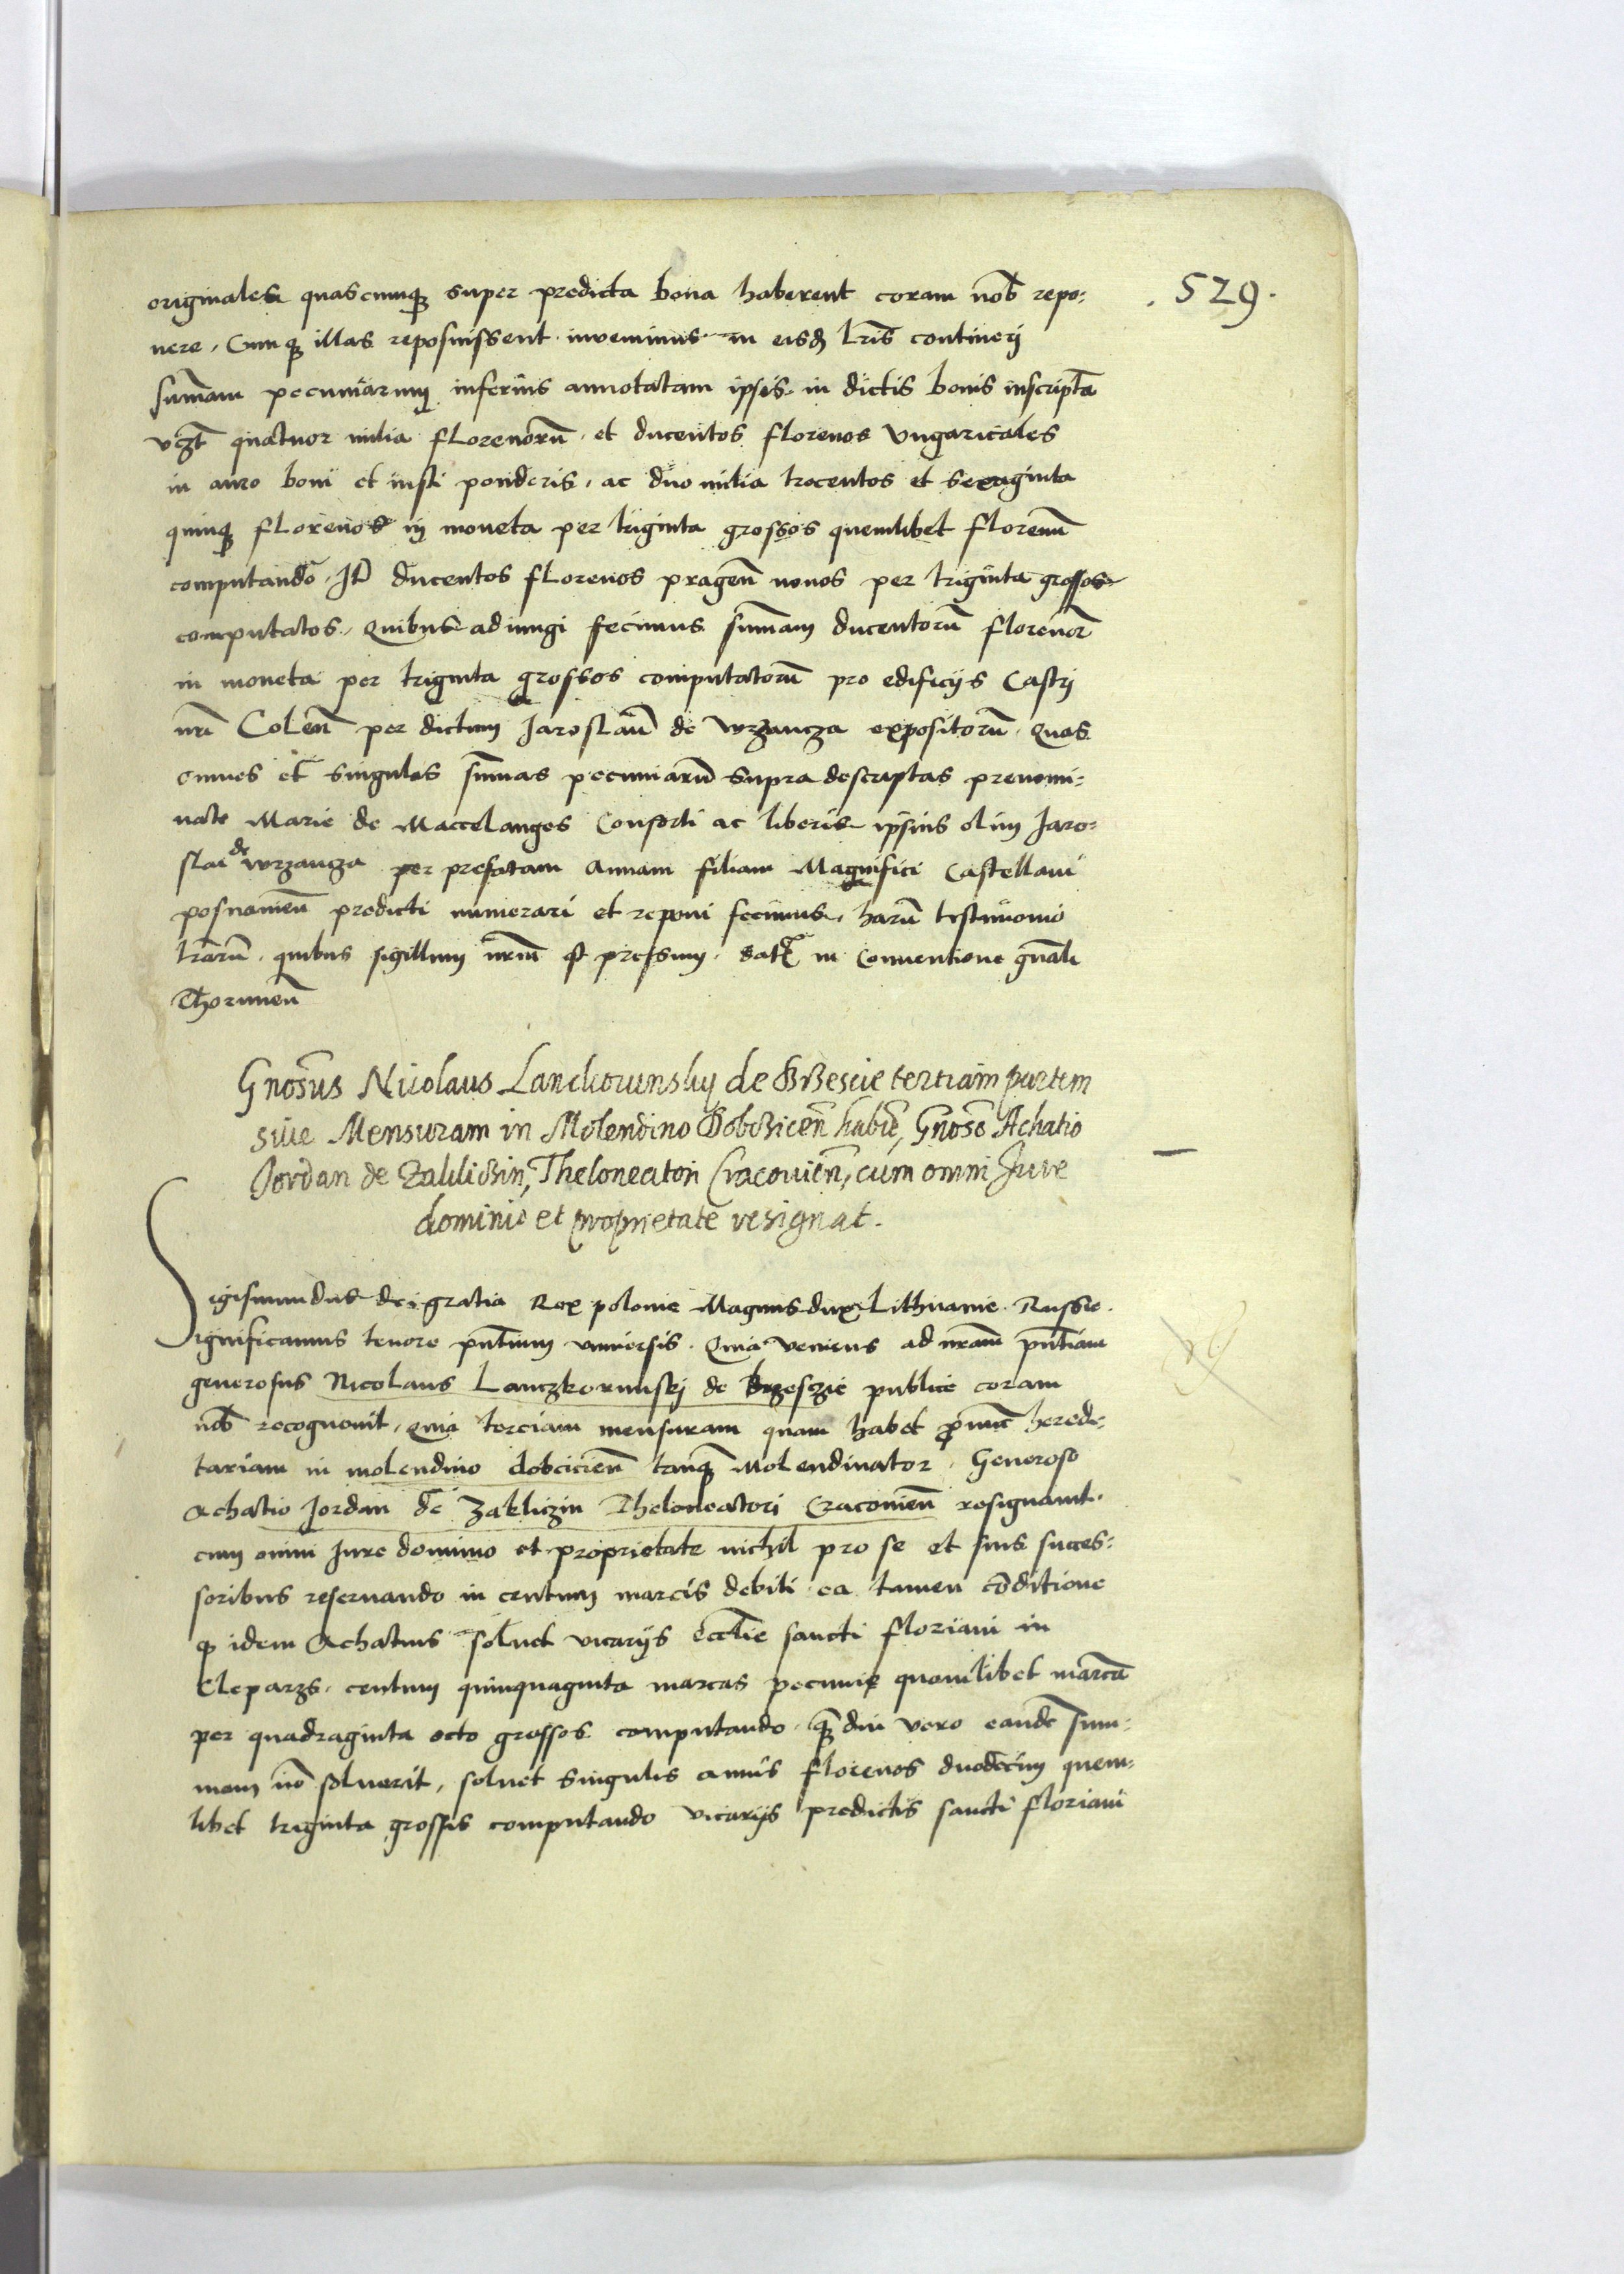 . 529.
originales quascumq super predicta bona haberent coram nob repo:
nere, Cumq illas reposuissent inuenimus in eisd lris contineri
sumam pecuniarum inferius annotatam ipsis in dictis bonis inscripta
vczt quatuor milia florenoru et ducentos florenos vngaricales
in auro boni et iusti ponderis, ac duo milia trecentos et sexaginta
quinq florenos in moneta per triginta grossos quemlibet florenu
computando, It ducentos florenos pragen nouos per triginta grossos
computatos, Quibus adiungi fecimus sumam ducentoru florenor
in moneta per triginta grossos computatoru pro edificijs Castri
nri Colen per dictum Jaroslau de wrzancza expositoru, Quas
omnes et singulas sumas pecuniaru supra descriptas prenomi:
nate Marie de Maccelanges Consorti ac liberis ipsius olim Jaro:
slai de wrzancza per prefatam Annam filiam Magnifici Castellani
posnanien predicti numerari et reponi fecimus, haru testimonio
lraru, quibus sigillum nrm est pressum, dat in Conuentione gnali
Thorunen
Gnosus Nicolaus Lanckorunsky de Brzescie tertiam partem
siue Mensuram in Molendino Dobczicen habe, Gnoso Achatio
Jordan de Zakliczin, Theloneatori Cracouien, cum omni Jure
dominio et proprietate resignat.
Sigismundus dei gratia Rex polonie Magnus dux Lithuanie Russie.
Significamus tenore pntium vniuersis. Quia veniens ad nram pntiam
generosus Nicolaus Lanczkorunskj de brzesczie publice coram
nob recognouit, Quia terciam mensuram quam habet pnuc heredi:
tariam in molendino dobcicien tanq Molendinator, Generoso
Achatio Jordan de Zakliczin Theloneatori Cracouien resignauit
cum omni Jure dominio et proprietate nichil pro se et suis succes:
soribus reseruando in centum marcis debiti ea tamen coditione
q idem Achatius soluet vicarijs ecclie sancti floriani in
Cleparzs, centum quinquaginta marcas pecunie quamlibet marca
per quadraginta octo grossos computando, q diu vero eande sum:
mam no soluerit, soluet singulis annis florenos duodecim quem:
libet triginta grossis computando vicarijs predictis sancti floriani